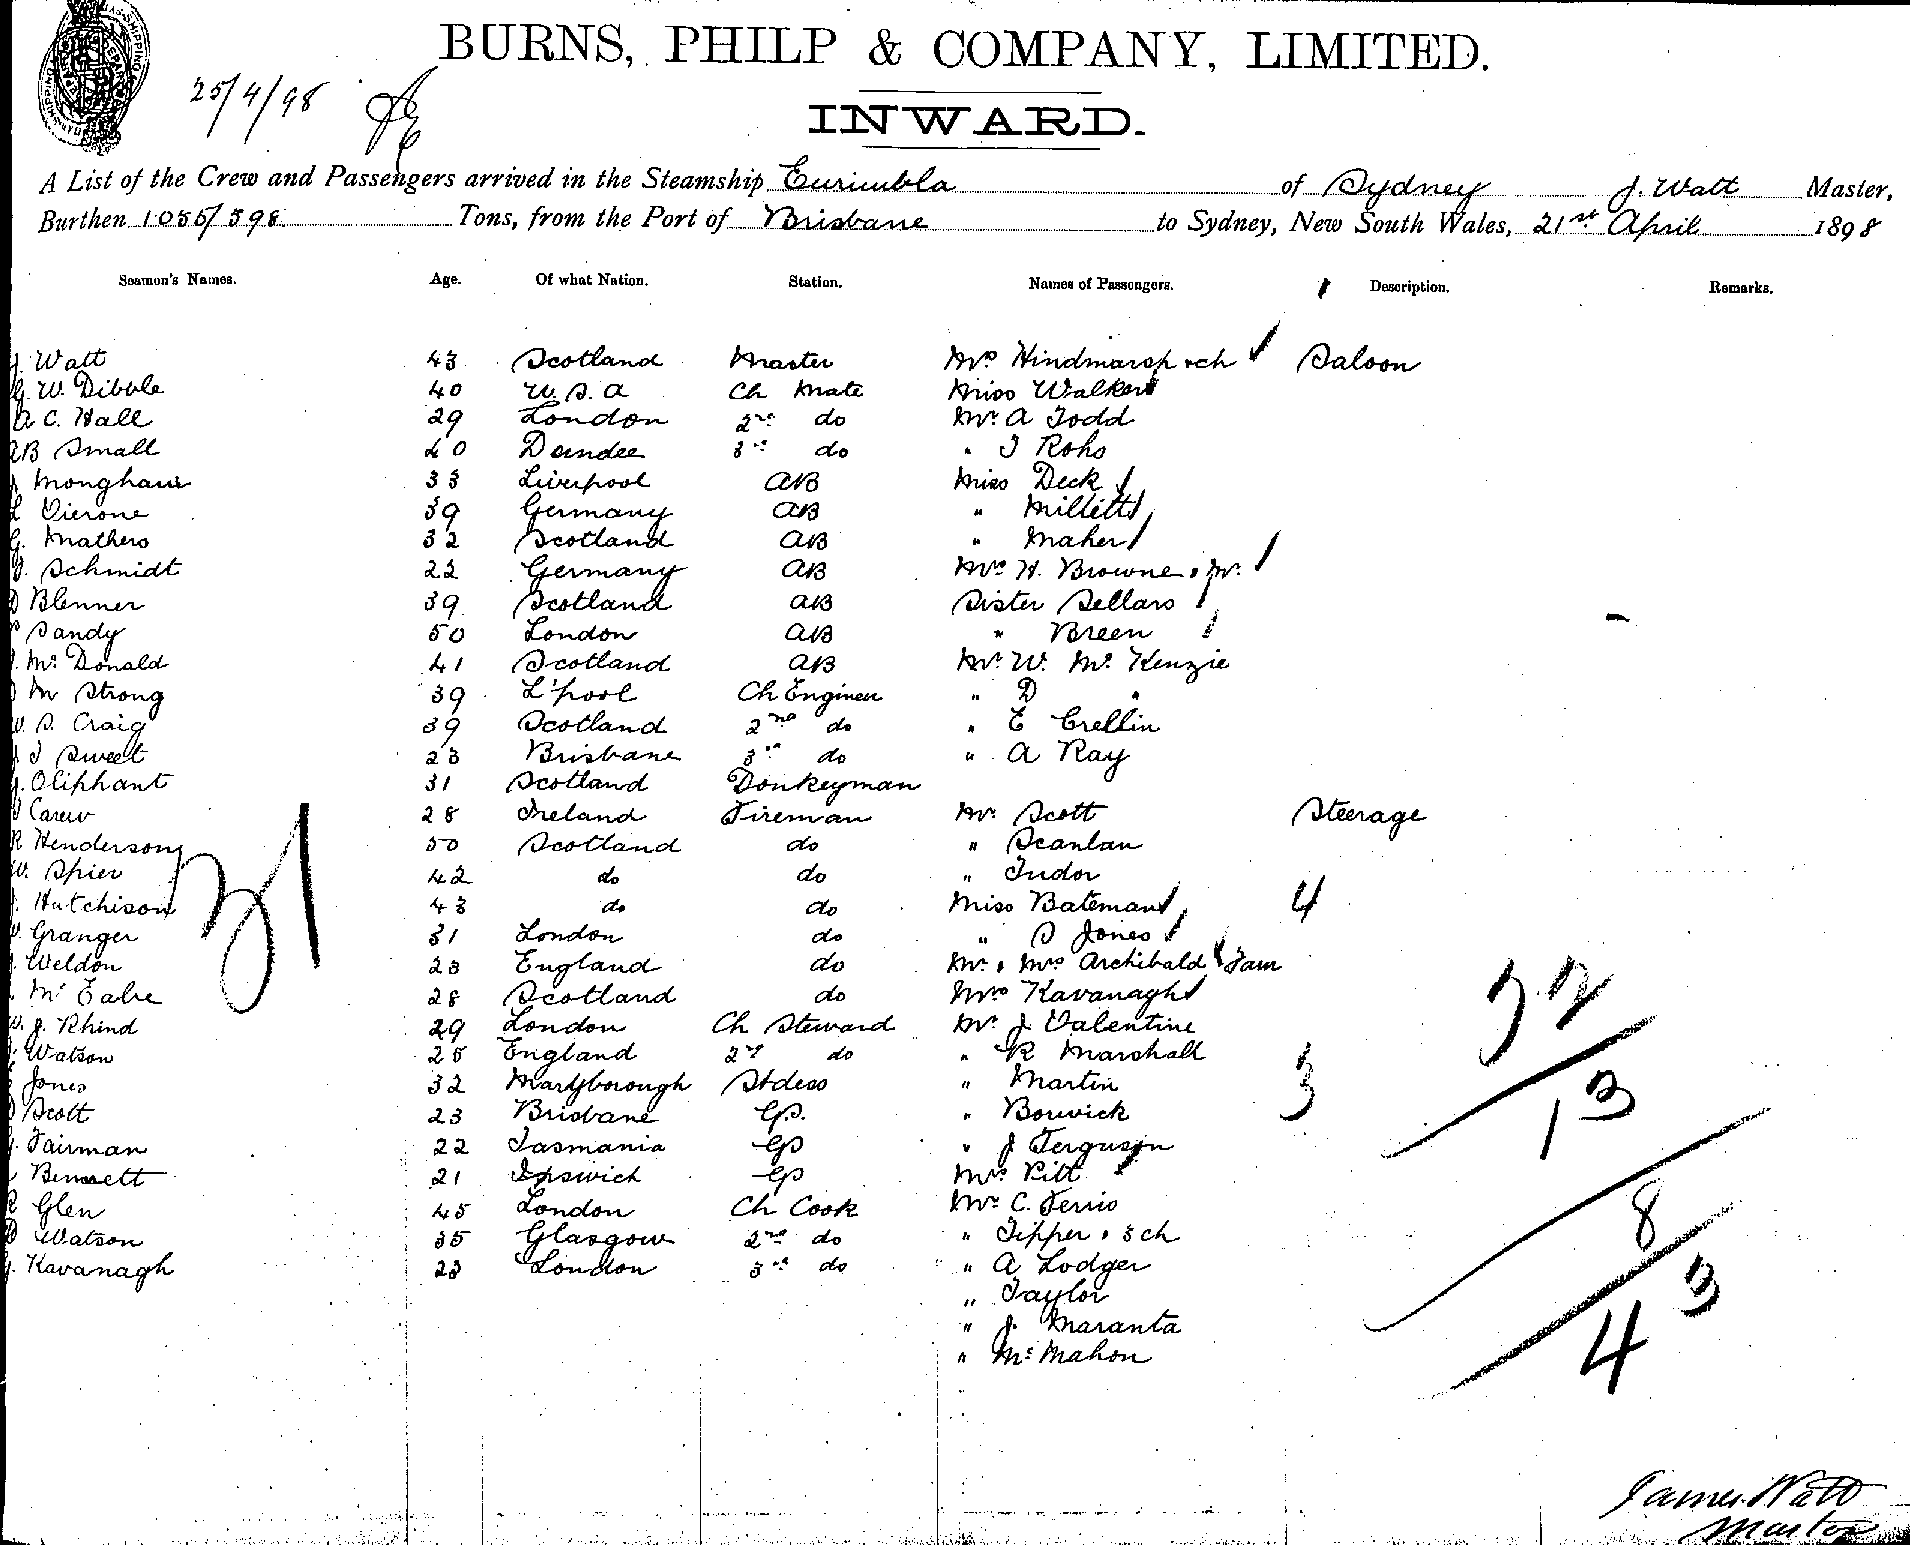 BURNS, PHILP & COMPANY, LIMITED.
25/4/98
INWARD.
A List of the Crew and Passengers arrived in the Steamship Eurimbla of Sydney J. Watt Master,
Burthen 1055/598 Tons, from the Port of Brisbane to Sydney, New South Wales, 21st April 1898
Seamen's Names. Age. Of what Nation. Station. Names of Passengers. Description. Remarks.
J. Watt 43 Scotland Master Mrs Hindmarsh + ch Saloon
G. W. Dibble 40 U.S.A Ch Mate Miss Walker
A C. Hall 29 London 2nd do Mr A Todd
AB Small 40 Dundee 3rd do " J Rohs
Monghan 33 Liverpool AB Miss Deck
L Vierone 39 Germany AB " Millett
G. Mathers 32 Scotland AB " Maher
Schmidt 22 Germany AB Mr H. Browne
Blenner 39 Scotland AB Sister Sellars
Sandy 50 London AB " Breen
Mc Donald 41 Scotland AB Mr W. Mc Kenzie
M Strong 39 L'pool Ch Engineer " D "
W. S. Craig 39 Scotland 2nd do " E Crellin
J Sweet 23 Brisbane 3rd do " A Ray
J. Oliphant 31 Scotland Donkeyman
Carew 28 Ireland Fireman Mr Scott Steerage
R Henderson 50 Scotland do " Scanlan
W. Spier 42 do do " Tudor
Hutchison 43 do do Miss Bateman 4
Granger 31 London do " S Jones
Weldon 23 England do Mr & Mrs Archibald & Fam
31
28 Scotland do Mrs Kavanagh
W. J. Rhind 29 London Ch Steward Mr J Valentine
Watson 25 England 2nd do " R Marshall
Jones 32 Maryborough Stdess " Martin 3
Scott 23 Brisbane GS. " Borwick
Fairman 22 Tasmania GS " J Ferguson
Bennett 21 Ipswich GS Mrs Pitt
Glen 45 London Ch Cook Mr C. Ferris
Watson 35 Glasgow 2nd do " Tipper & 3 ch
J. Kavanagh 23 London 3rd do " A Lodger
" Taylor
" J. Maranta
" Mc Mahon
13
8
43
James Watt
Master